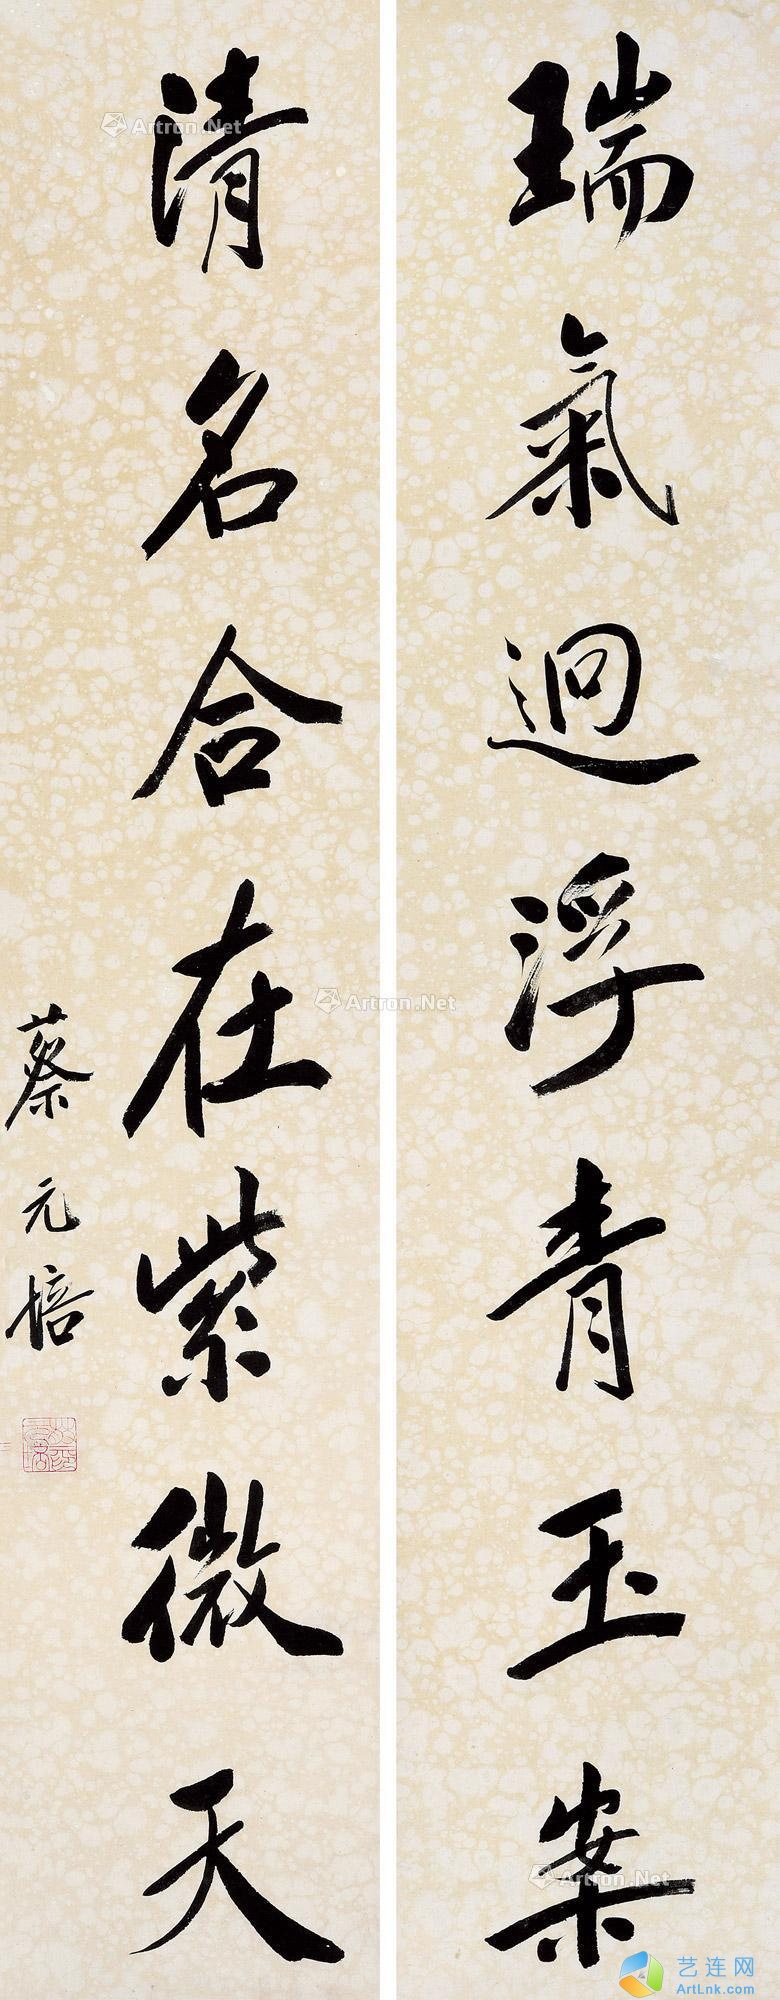 瑞氣迴浮青玉案
清名合在紫微天
蔡元培
Artron.Net
Artron.Net
Artron.Net
艺连网
ArtLnk.com